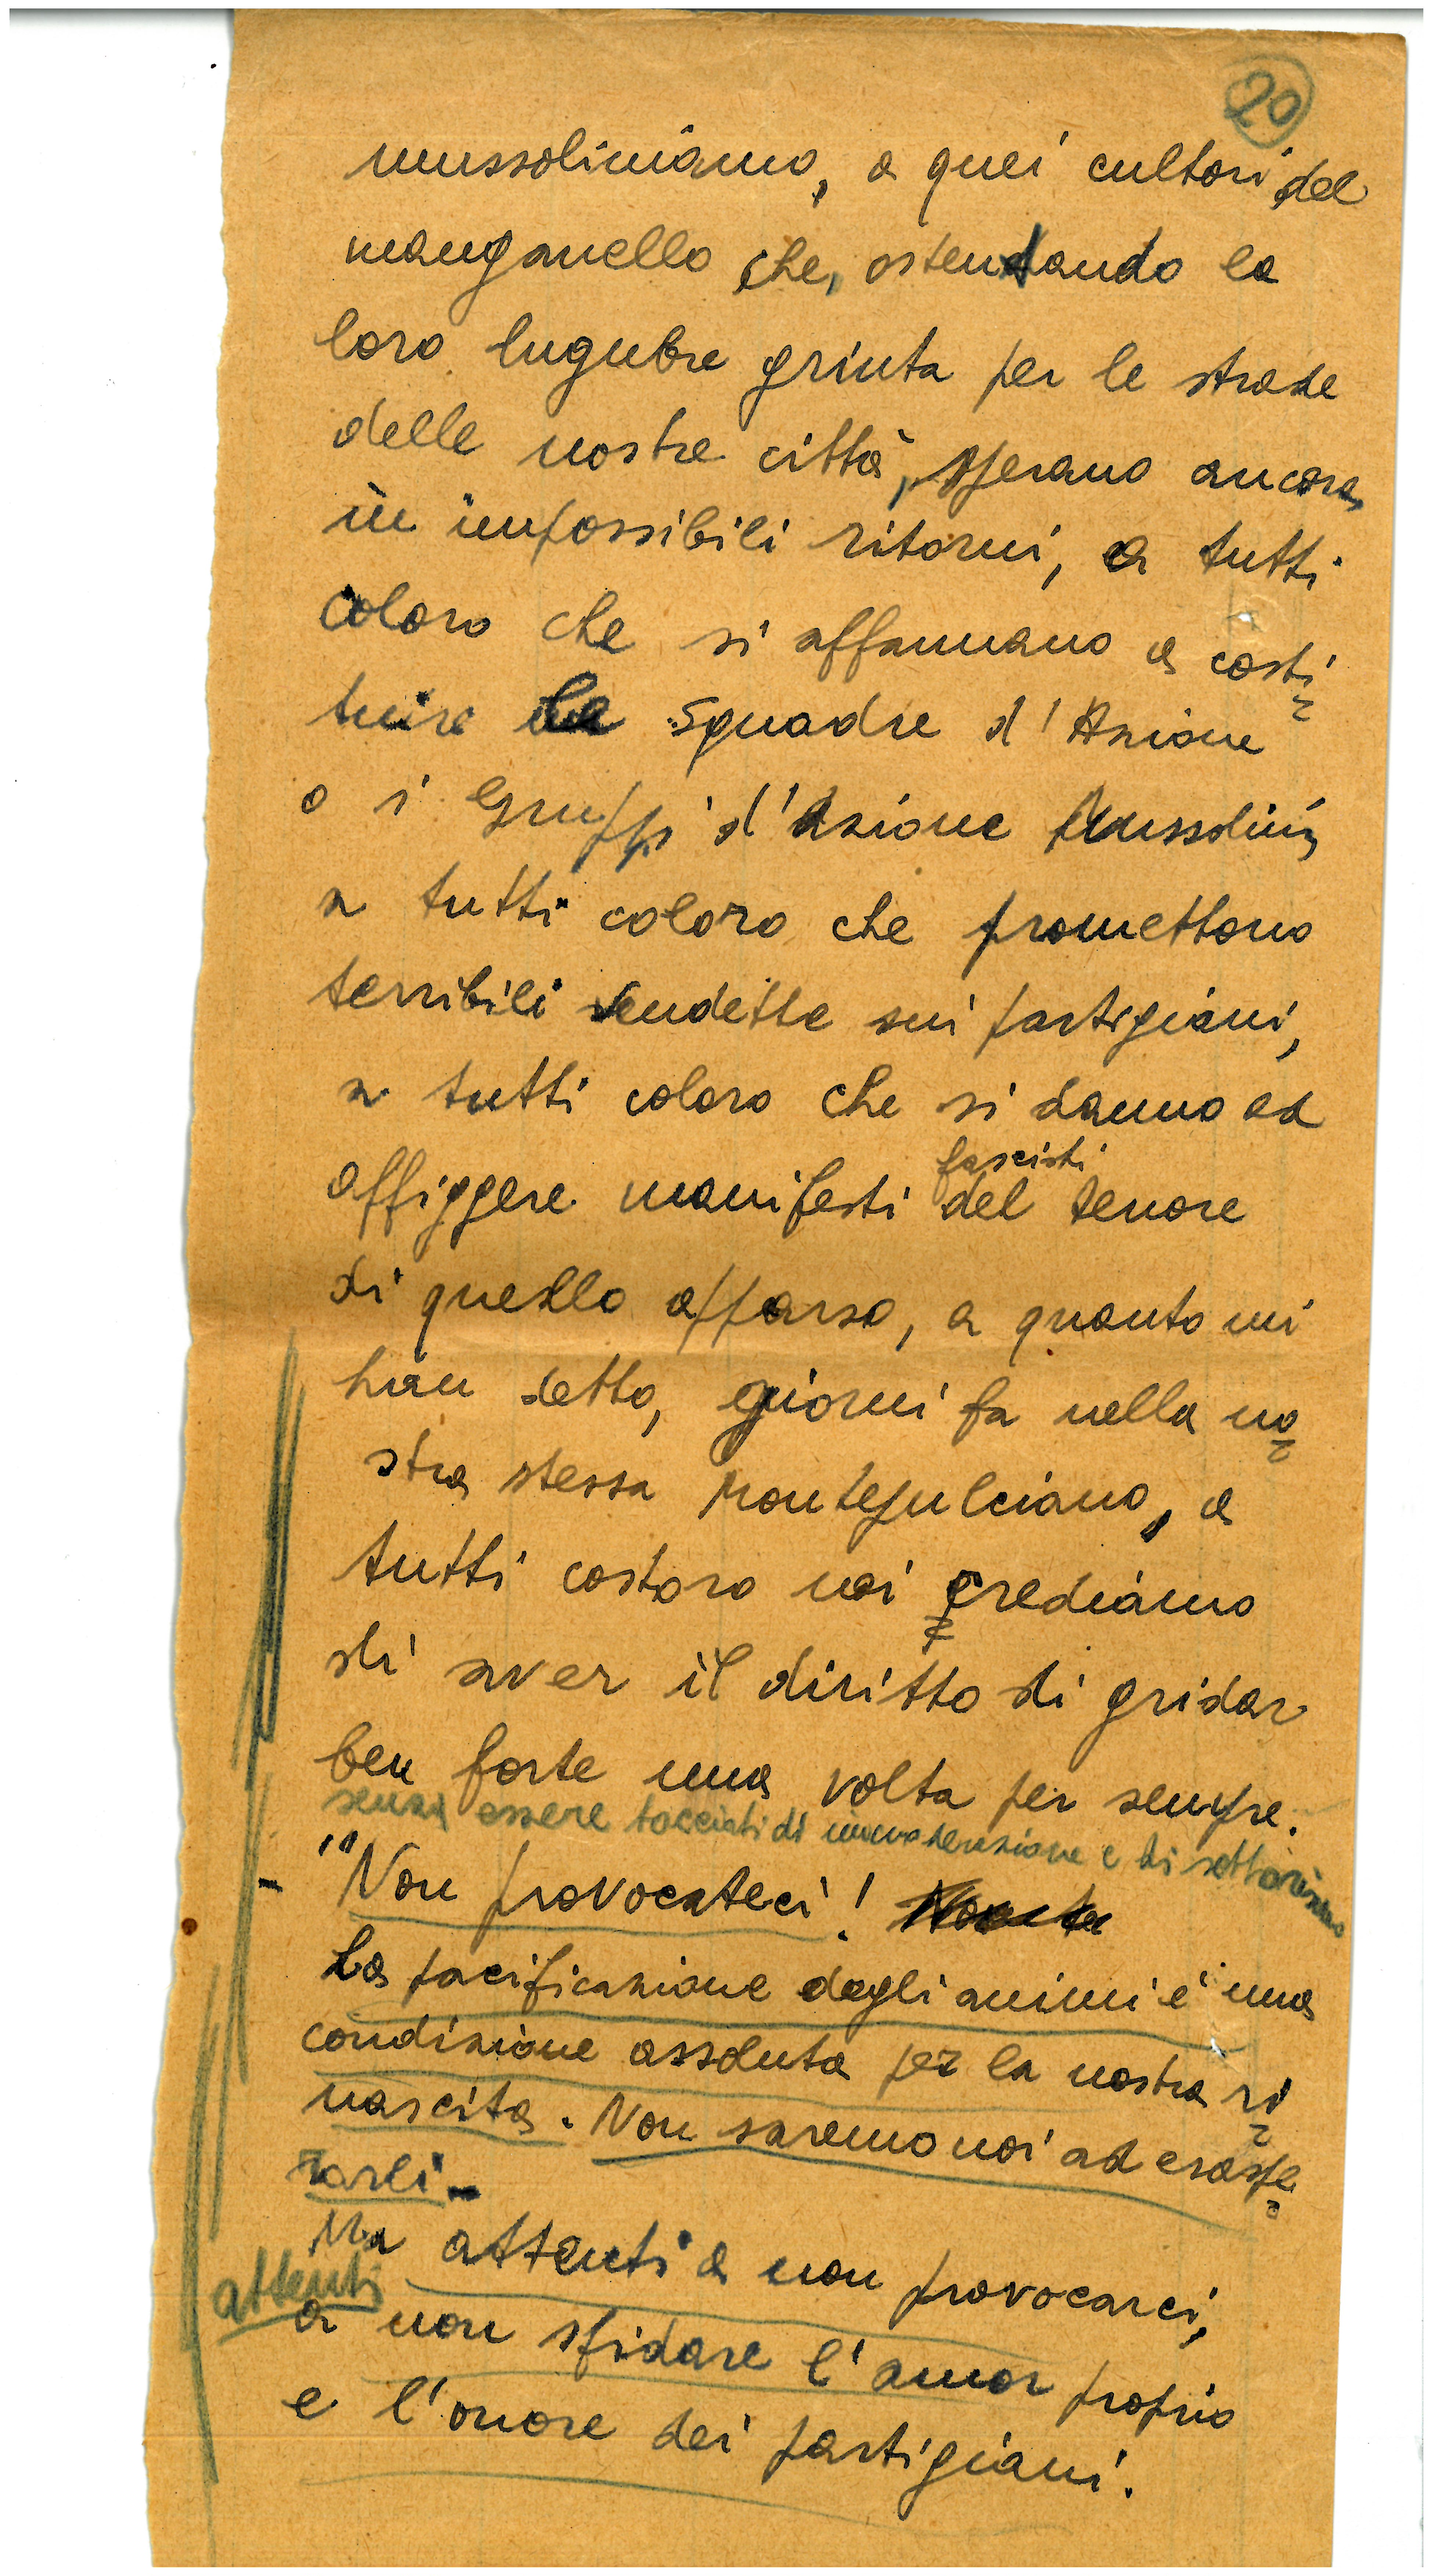 20
mussoliniano, a quei cultori del
manganello che, ostentando la
loro lugubre grinta per le strade
delle nostre città, sperano ancora
in impossibili ritorni, a tutti
coloro che si affannano a costi=
tuire le squadre d'Azione
o i Gruppi d'Azione Mussolini,
a tutti coloro che promettono
terribili vendette sui partigiani,
a tutti coloro che si danno ad
fascisti
affiggere manifesti del tenore
di quello apparso, a quanto mi
han detto, giorni fa nella no=
stra stessa Montepulciano, a
tutti costoro noi crediamo
di aver il diritto di gridar
ben forte una volta per sempre.
senza essere tacciati di e di settarismo
- "Non provocateci!
La pacificazione degli animi è una
condizione assoluta per la nostra ri=
nascita. Non saremo noi ad esaspe=
rarli-
Ma attenti a non provocarci,
attenti
a non sfidare l'amor proprio
e l'onore dei partigiani.